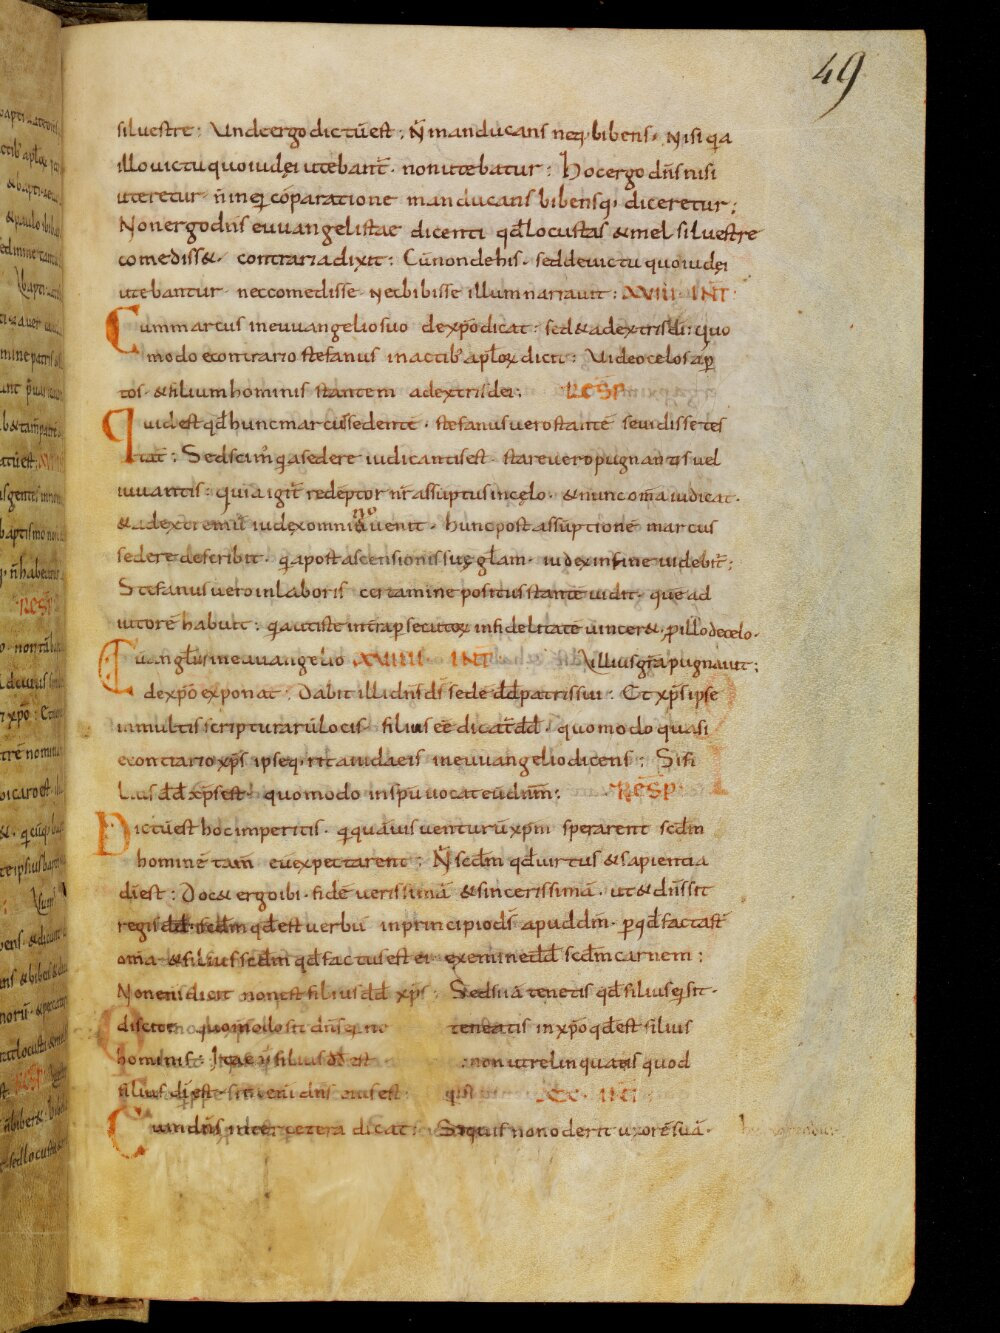 49
siluestre : Undeergo dictu̅est ; N̅ manducans neq; bibens · Nisi q̇a
illo uictu quo iudęi utebant̅ · non utebatur : Hoc ergo dn̅s nisi
uteretur · n̅ in ei co̅paratione manducans bibensq; diceretur ;
Non ergo dn̅s euuangelistae dicenti qd̅ locustas & mel siluestre
comediss& · contraria dixit : Cu̅ non de his · sed de uictu quo iudęi
utebantur nec comedisse · Nec bibisse illum narrauit : XVIII · INT̅
Cum marcus in euuangelio suo de xp̅o dicat · sed& ad extris di̅ : Quo
modo econtrario stefanus in actib; apl̅oꝝ dicit : Uideo celos ap̅
tos · & filium hominis stantem ad extris dei : RESP̅
Quid est qd̅ hunc marcus sedente̅ · stefanus uero stante̅ se uidisse tes
tat̅ : Sed scim; q̇a sedere iudicantis est · stare uero pugnantis uel
iuuantis : Quia igit̅ rede̅ptor nr̅ assu̅ptus in cęlo · & nunc om̅a iudicat ·
& ad extremu̅ iudex omniu̅ uenit · hunc post assu̅ptione̅ marcus
sedere describit · q̇a post ascensionis suę gl̅am · iudex in fine uidebit̅ ;
Stefanus uero in laboris certamine positus stante̅ uidit · que̅ ad
iutore̅ habuit : q̇a ut iste in terra p̱secutoꝝ infidelitate̅ uincer& · p̱ illo de celo ·
Euangl̅us in euuangelio XVIIII · INT̅ illius gr̅a pugnauit ;
de xp̅o exponat : Dabit illi dn̅s ds̅ sede̅ dd̅ patris sui : Et xp̅s ipse
in multis scripturaru̅ locis · filius ee̅ dicat̅ dd̅ · quomodo quasi
econtrario xp̅s ipse q; rit a iudaeis in euuangelio dicens : Si fi
lius dd̅ xp̅s est · quomodo in sp̅u uocat eu̅ dnm̅ ; RESP̅
Dictu̅ est hoc imperitis · q̇ qua̅uis uenturu̅ xp̅m sperarent scd̅m
homine̅ tam̅ eu̅ expectarent ; N̅ scd̅m qd̅ uirtus & sapientia
di̅ est : Doc& ergo ibi · fide̅ uerissima̅ & sincerissima̅ · ut & dn̅s sit
regis dd̅ · scd̅m qd̅ est uerbu̅ in principio ds̅ apud dm̅ · p̱ qd̅ facta st̅
om̅a · & filius scd̅m qd̅ factus est ei ex semine dd̅ scd̅m carnem ;
Non eni̅ dicit non est filius dd̅ xp̅s · Sed si ia̅ tenetis qd̅ filius ei sit ·
discite quomodo sit dn̅s teneatis in xp̅o qd̅ est filius
hominis : filius dd̅ est non utrelinquatis quod
filius di̅ est dn̅s eius est : XX · INT̅
Cum dn̅s inter cetera dicat : Si quis non oderit uxore̅ sua̅ ·